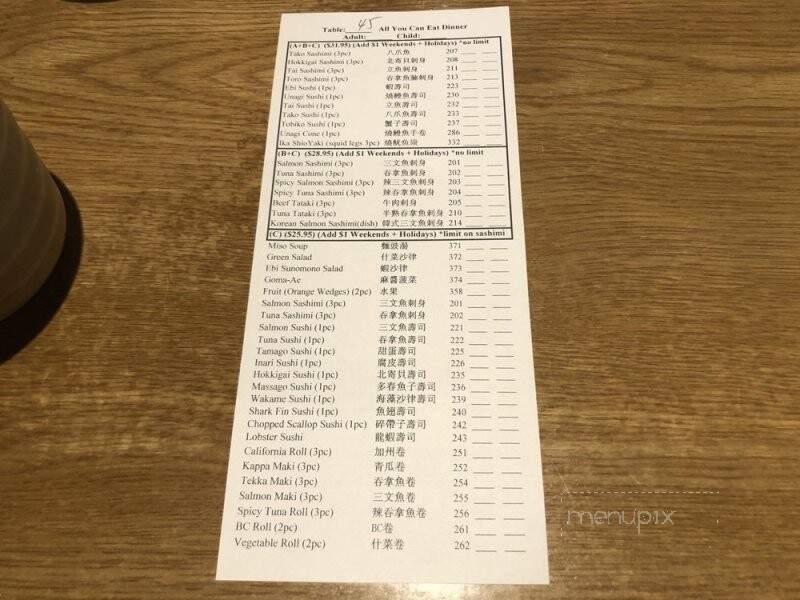 Table: 45 All You Can Eat Dinner
Adult: Child:
(A+B+C) ($31.95) (Add $1 Weekends + Holidays) *no limit
Tako Sashimi (3pc) 八爪魚 207
Hokkigai Sashimi (3pc) 北寄貝刺身 208
Tai Sashimi (3pc) 立魚刺身 211
Toro Sashimi (3pc) 吞拿魚腩刺身 213
Ebi Sushi (1pc) 蝦壽司 223
Unagi Sushi (1pc) 燒鰻魚壽司 230
Tai Sushi (1pc) 立魚壽司 232
Tako Sushi (1pc) 八爪魚壽司 233
Tobiko Sushi (1pc) 蟹子壽司 237
Unagi Cone (1pc) 燒鰻魚手卷 286
Ika ShioYaki (squid legs 3pc) 燒魷魚須 332
(B+C) ($28.95) (Add $1 Weekends + Holidays) *no limit
Salmon Sashimi (3pc) 三文魚刺身 201
Tuna Sashimi (3pc) 吞拿魚刺身 202
Spicy Salmon Sashimi (3pc) 辣三文魚刺身 203
Spicy Tuna Sashimi (3pc) 辣吞拿魚刺身 204
Beef Tataki (3pc) 牛肉刺身 205
Tuna Tataki (3pc) 半熟吞拿魚刺身 210
Korean Salmon Sashimi(dish) 韓式三文魚刺身 214
(C) ($25.95) (Add $1 Weekends + Holidays) *limit on sashimi
Miso Soup 麵豉湯 371
Green Salad 什菜沙律 372
Ebi Sunomono Salad 蝦沙律 373
Goma-Ae 麻醬菠菜 374
Fruit (Orange Wedges) (2pc) 水果 358
Salmon Sashimi (3pc) 三文魚刺身 201
Tuna Sashimi (3pc) 吞拿魚刺身 202
Salmon Sushi (1pc) 三文魚壽司 221
Tuna Sushi (1pc) 吞拿魚壽司 222
Tamago Sushi (1pc) 甜蛋壽司 225
Inari Sushi (1pc) 腐皮壽司 226
Hokkigai Sushi (1pc) 北寄貝壽司 235
Massago Sushi (1pc) 多春魚子壽司 236
Wakame Sushi (1pc) 海藻沙律壽司 239
Shark Fin Sushi (1pc) 魚翅壽司 240
Chopped Scallop Sushi (1pc) 碎帶子壽司 242
Lobster Sushi 龍蝦壽司 243
California Roll (3pc) 加州卷 251
Kappa Maki (3pc) 青瓜卷 252
Tekka Maki (3pc) 吞拿魚卷 254
Salmon Maki (3pc) 三文魚卷 255
Spicy Tuna Roll (3pc) 辣吞拿魚卷 256
BC Roll (2pc) BC卷 261
Vegetable Roll (2pc) 什菜卷 262
menupix